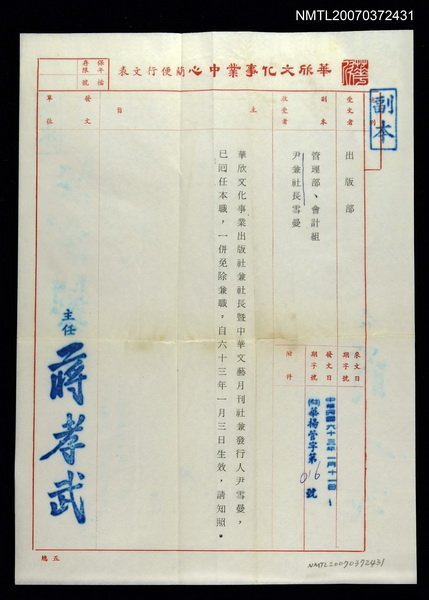 NMTL20070372431
華欣文化事業中心簡便行文表
保存年限
檔號
副本
受文者
出版部
副本
收受者
管理部、會計組
尹兼社長雪曼
來文日期字號
發文日期字號
中華民國六十三年一月十一日
華揚管字第016號
附件
主旨
華欣文化事業出版社兼社長暨中華文藝月刊社兼發行人尹雪曼，
已囘任本職，一併免除兼職，自六十三年一月三日生效，請知照。
發文單位
主任 蔣孝武
總五
NMTL20070372431